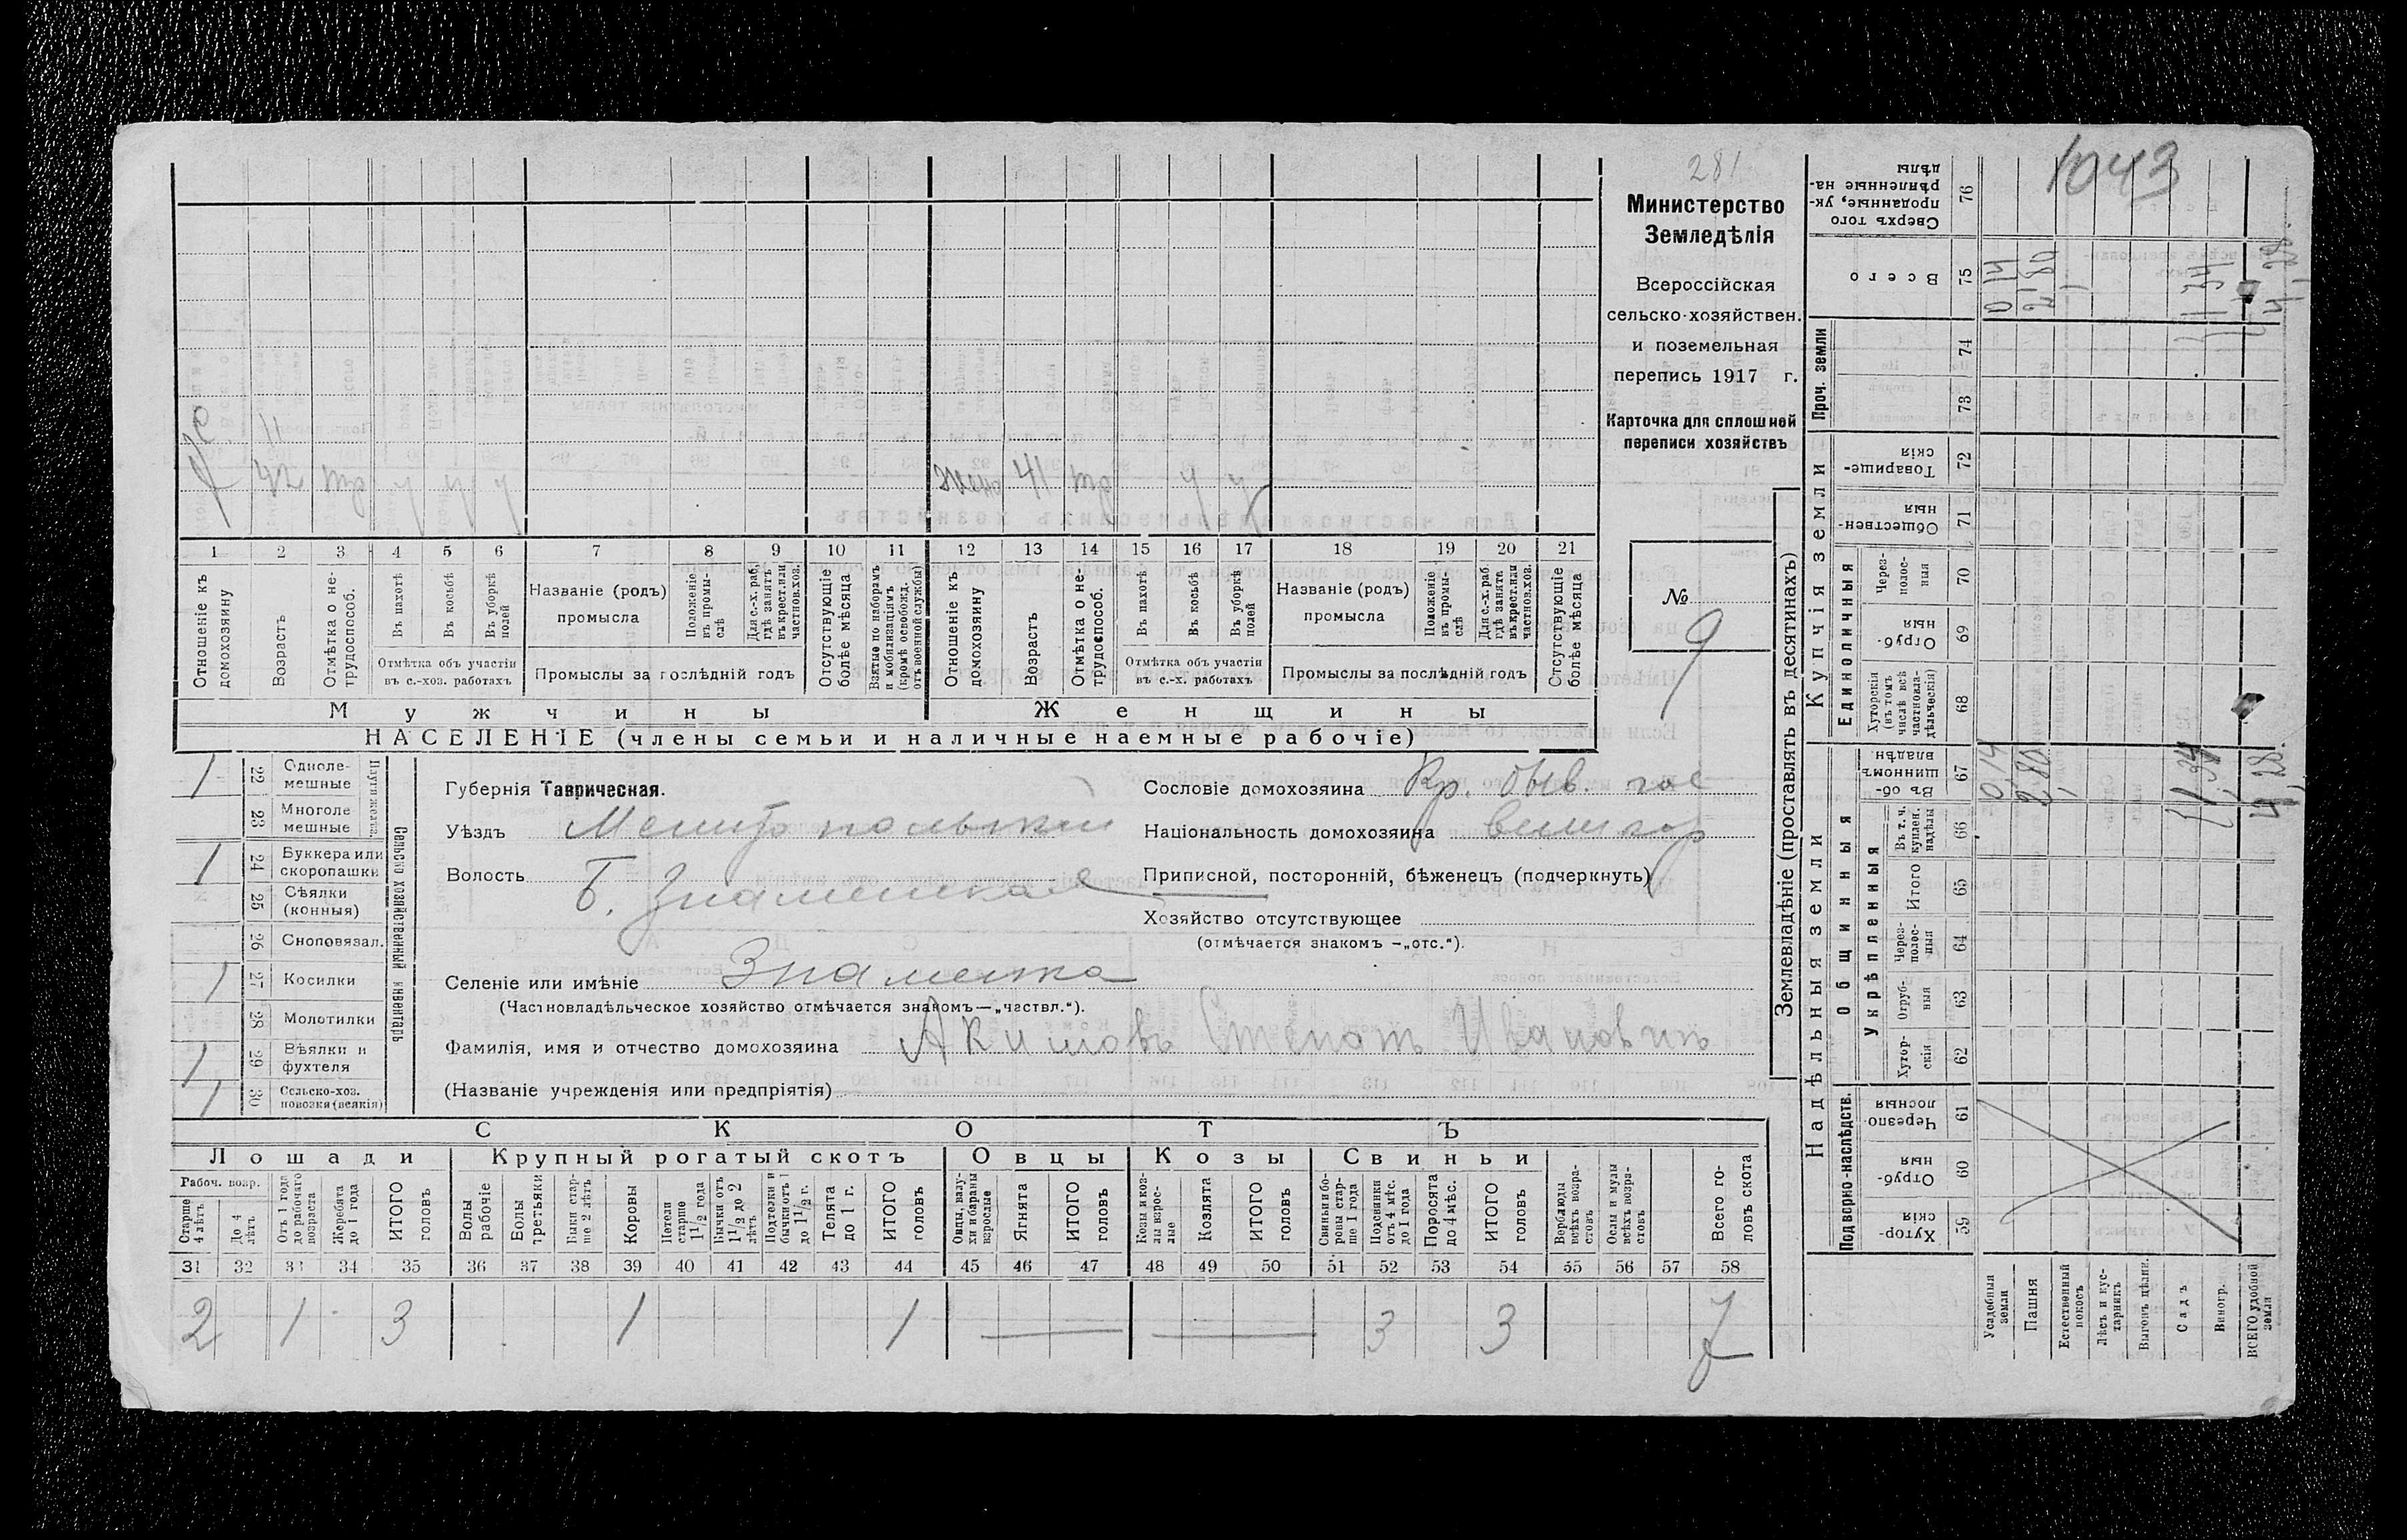 281
1043
Министерство
Земледѣлія
Всероссійская
сельско-хозяйствен.
и поземельная
перепись 1917 г.
Карточка для сплошной
переписи хозяйствъ
№
9
жена 41
1 2 3 4 5 6 7 8 9 10 11 12 13 14 15 16 17 18 19 20 21
Отношеніе къ домохозяину
Возрастъ
Отмѣтка о не-трудоспособ.
Въ пахотѣ
Въ косьбѣ
Въ уборкѣ полей
Отмѣтка объ участіи въ с.-хоз. работахъ
Названіе (родъ) промысла
Положеніе въ промы-слѣ
Для с.-х. раб. гдѣ занятъ въ крест. или частнов. хоз.
Промыслы за послѣдній годъ
Отсутствующіе болѣе мѣсяца
Взятые по наборамъ и мобилизаціямъ (кромѣ освобожд. отъ военной службы)
Отношеніе къ домохозяину
Возрастъ
Отмѣтка о не-трудоспособ.
Въ пахотѣ
Въ косьбѣ
Въ уборкѣ полей
Отмѣтка объ участіи въ с.-х. работахъ
Названіе (родъ) промысла
Положеніе въ промы-слѣ
Для с.-х. раб. гдѣ заняте въ крест. или частнов. хоз.
Промыслы за послѣдній годъ
Отсутствующіе болѣе мѣсяца
Мужчины
Женщины
НАСЕЛЕНІЕ (члены семьи и наличные наемные рабочіе)
Сельско хозяйственный инвентарь
1 22 Одноле-мешные
23 Многоле мешные
1 24 Буккера или скоропашки
25 Сѣялки (конныя)
26 Сноповязал.
1 27 Косилки
28 Молотилки
1 29 Вѣялки и фухтеля
1 30 Сельско-хоз. повозки (всякія)
Губернія Таврическая.
Уѣздъ Мелитопольскій
Волость Б. Знаменская
Селеніе или имѣніе Знаменка
(Частновладѣльческое хозяйство отмѣчается знакомъ—„частвл.“).
Фамилія, имя и отчество домохозяина Акимовъ Степанъ Ивановичъ
(Названіе учрежденія или предпріятія)
Сословіе домохозяина Кр. быв. гос
Національность домохозяина великор
Приписной, посторонній, бѣженецъ (подчеркнуть)
Хозяйство отсутствующее
(отмѣчается знакомъ —„отс.“).
СКОТЪ
Лошади Крупный рогатый скотъ Овцы Козы Свиньи
Рабоч. возр.
Старше 4 лѣтъ
До 4 лѣтъ
Отъ 1 года до рабочаго возраста
Жеребята до 1 года
ИТОГО головъ
Волы рабочіе
Волы третьяки
Быки стар-ше 2 лѣтъ
Коровы
Нетели старше 1½ года
Бычки отъ 1½ до 2 лѣтъ
Подтелки и бычки отъ 1 до 1½ г.
Телята до 1 г.
ИТОГО головъ
Овцы, валу-хи и бараны взрослые
Ягнята
ИТОГО головъ
Козы и коз-лы взрос-лые
Козлята
ИТОГО головъ
Свиньи и бо-ровы стар-ше 1 года
Подсвинки отъ 4 мѣс. до 1 года
Поросята до 4 мѣс.
ИТОГО головъ
Верблюды всѣхъ возра-стовъ
Ослы и мулы всѣхъ возра-стовъ
Всего го-ловъ скота
31 32 33 34 35 36 37 38 39 40 41 42 43 44 45 46 47 48 49 50 51 52 53 54 55 56 57 58
2 1 - 3 1 1 3 3 7
Землевладѣніе (проставлять въ десятинахъ)
Надѣльныя земли
Купчія земли
Проч. земли
Подворно-наслѣдств.
Общинныя
Укрѣпленныя
Единоличныя
Сверхъ того проданные, ук-рѣпленные на-дѣлы 76
Всего 75
74
73
Товарище-скія 72
Обществен-ныя 71
Через-полос-ныя 70
Отруб-ныя 69
Хуторскія (въ томъ числѣ всѣ частновла-дѣльческія) 68
Въ об-щинномъ владѣн 67
Въ т. ч. куплен. надѣлы 66
Итого 65
Через-полос-ныя 64
Отруб-ныя 63
Хутор-скія 62
Черезпо-лосныя 61
Отруб-ныя 60
Хутор-скія 59
Усадебныя земли
Пашня
Естественный покосъ
Лѣсъ и кус-тарникъ
Выгонъ цѣлин.
Садъ
Виногр.
ВСЕГО удобной земли
0,14 2,80 1,34 4,28.
0,14 2,80 1,34 4,28.